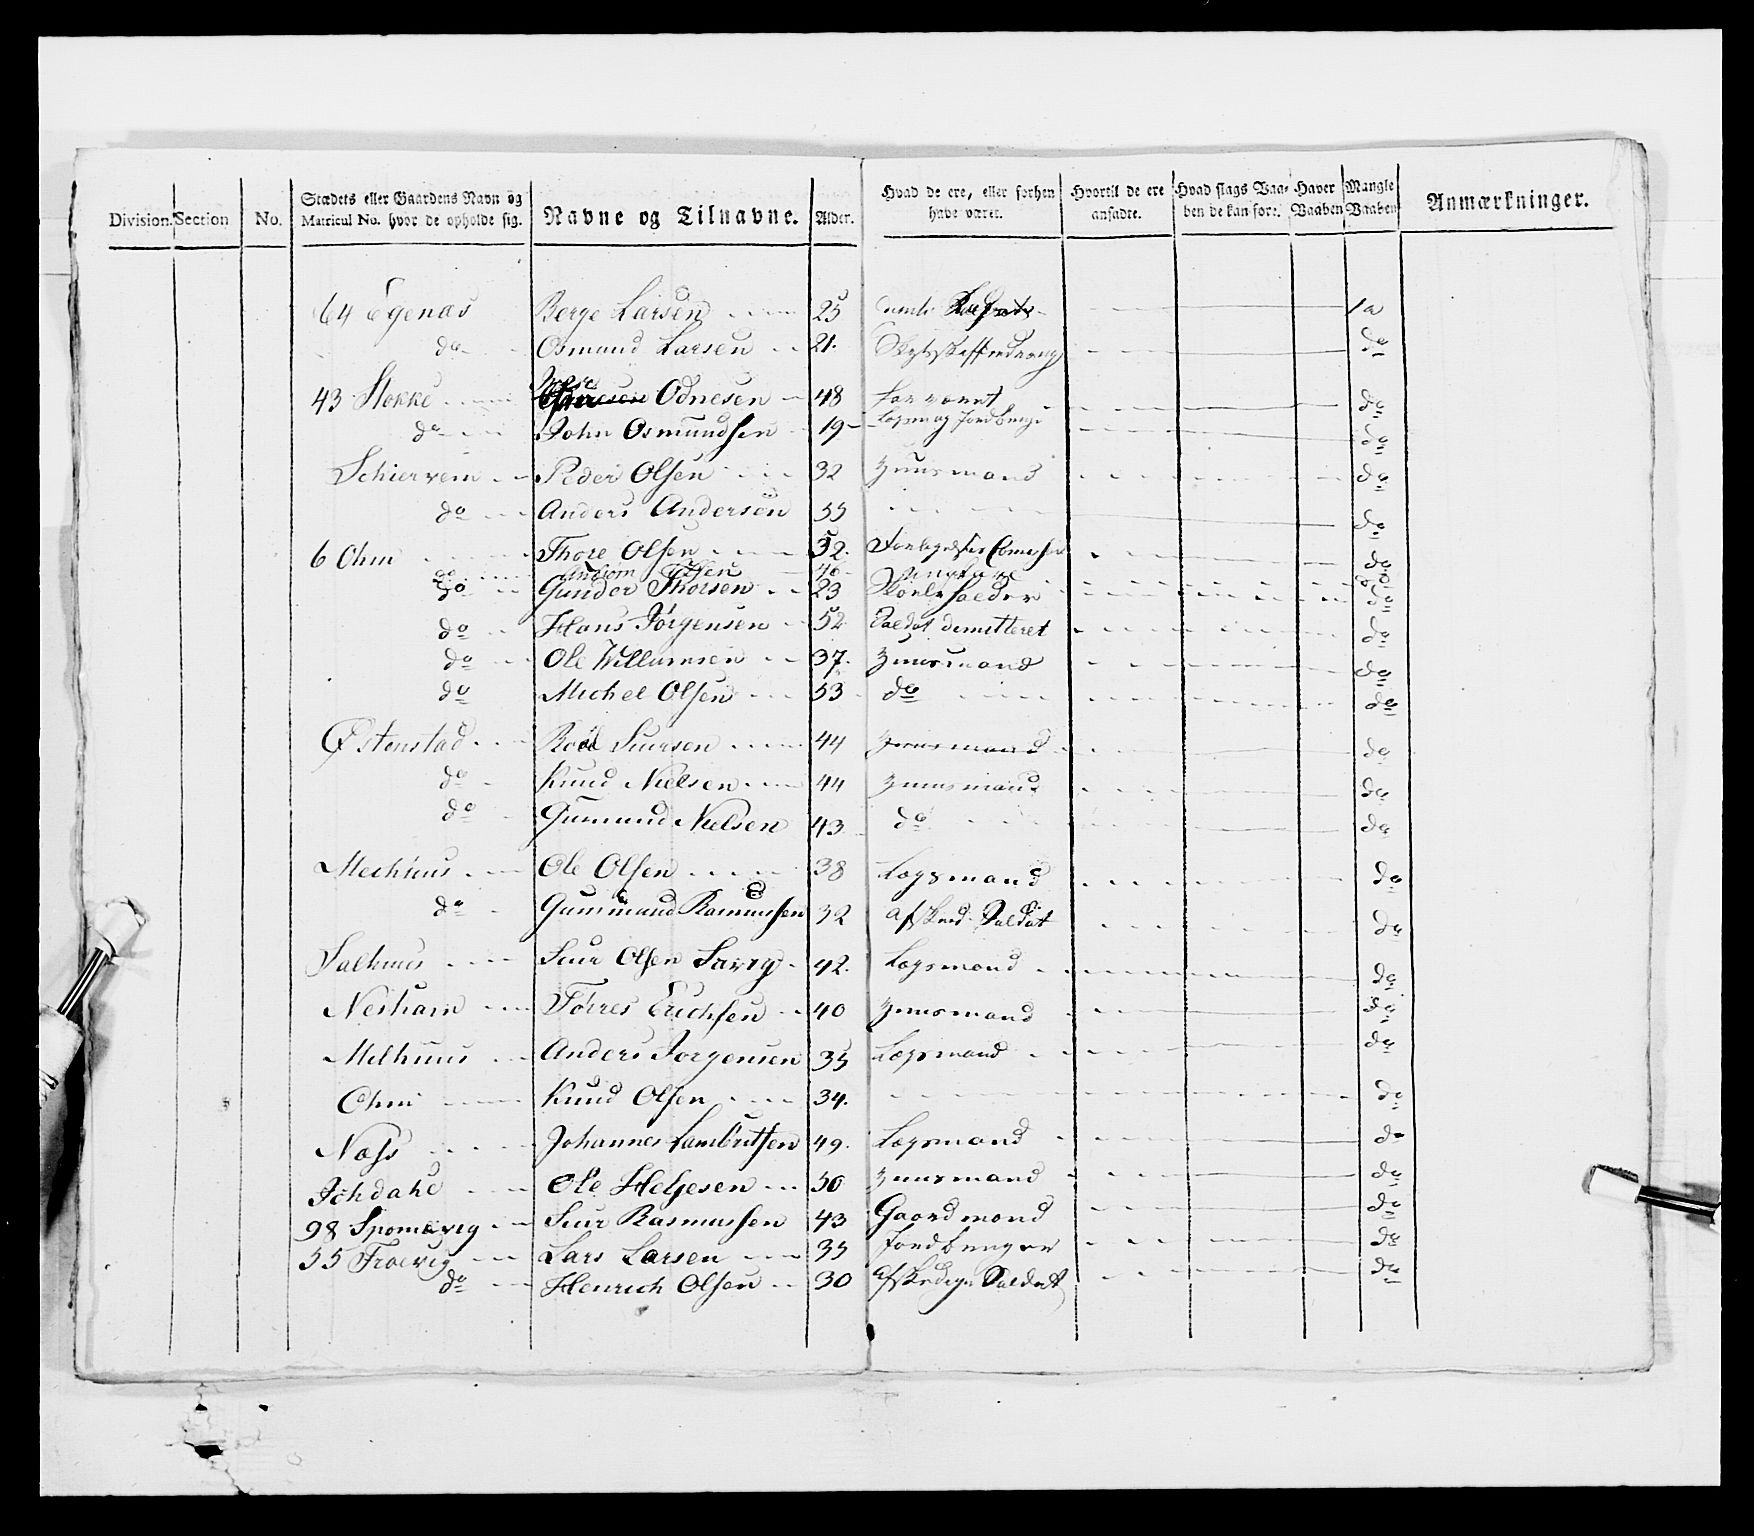 Division. Section No. Stædets eller Gaardens Navn og Matricul No. hvor de opholde sig. Navne og Tilnavne. Alder. Hvad de ere, eller forhen have været. Hvortil de ere ansadte. Hvad slags Vaaben de kan føre. Haver Vaaben Mangle Vaaben Anmærkninger.
64 Egenæs Berge Larsen 25 Ja
do Osmund Larsen 21. do
43 Stokke Odnesen 48 do
do John Osmundsen 19 Jordbrug do
Schierveim Peder Olsen 32 Huusmand do
do Anders Andersen 55 do
6 Ohm Thore Olsen 52. do
do Olsen 46 do
do Gunder Thorsen 23 Skoleholder do
do Hans Jørgensen 52 Saldat demitteret do
do Ole Willumsen 37. Huusmand do
do Michel Olsen 53 do do
Østenstad Roal Siursen 44 Huusmand do
do Knud Nielsen 44 Huusmand do
do Gunmund Nielsen 43 do do
Mechuus Ole Olsen 38 Logsmand do
do Gunmund Rasmussen 32 Afsked. Saldat do
Salhuus Siur Olsen Sævig 42. Logsmand do
Nesham Tørres Erichsen 40 Huusmand do
Melhuus Anders Jørgensen 35 Logsmand do
Ohm Knud Olsen 34. do
Næss Johannes Lambritsen 49. Logsmand do
Ichdahl Ole Helgesen 50 Huusmand do
98 Sponevig Siur Rasmussen 43 Gaardmand do
55 Froevig Lars Larsen 35 Jordbruger do
do Henrich Olsen 30 Afskediget Saldat do